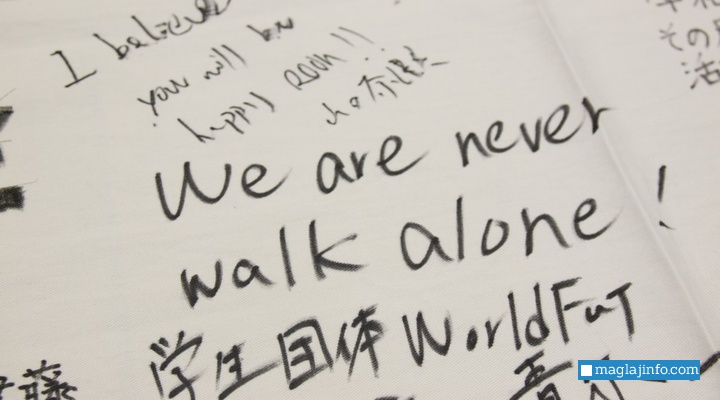 I believe
you will be
happy soon!!
We are never
walk alone!
学生団体 WorldFuT
藤
その
活
maglajinfo.com